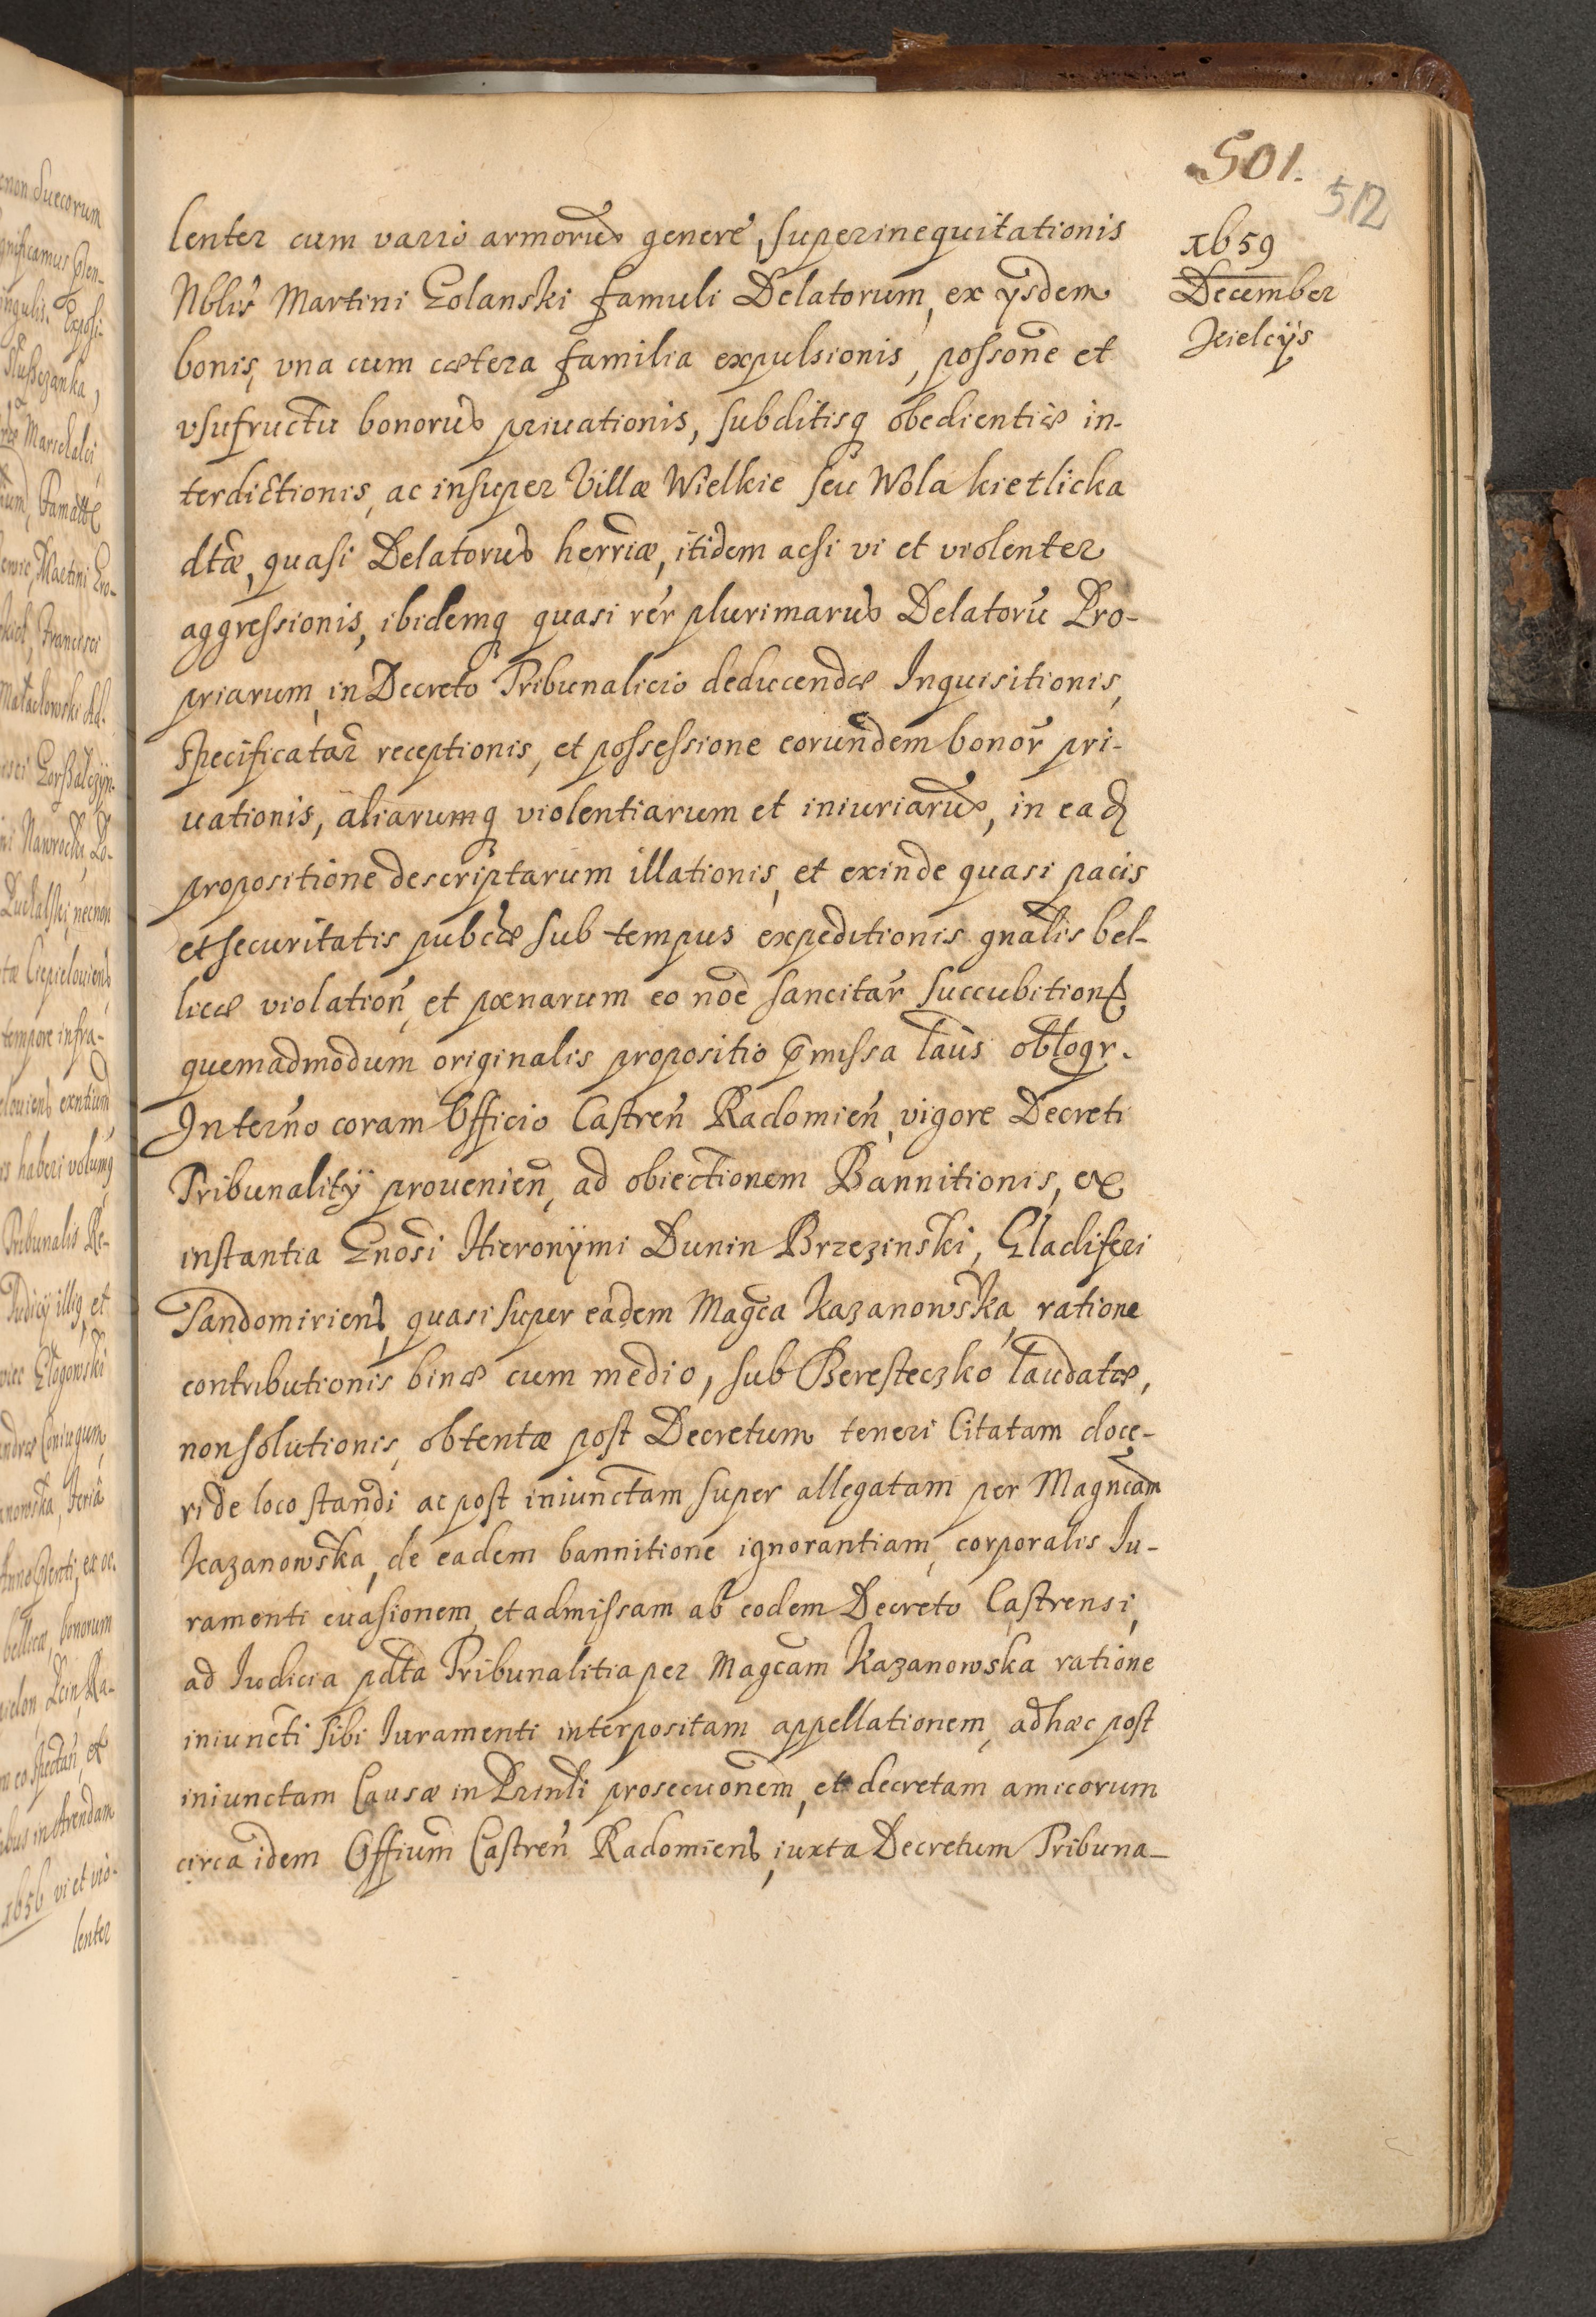 501.
512
1659
December
Kielcys
lenter cum vario armorum genere, superinequitationis
Nblis Martini Golanski famuli Delatorum, ex ysdem
bonis, una cum cætera familia expulsionis, possone et
vsufructu bonorum priuationis, subditisq obedientiæ in-
terdictionis, ac insuper Villæ Wielkie seu Wola kietlicka
dtæ, quasi Delatorum herriæ, itidem acsi vi et violenter
aggressionis, ibidemq quasi rer plurimarum Delatorũ Pro-
priarum, in Decreto Tribunalicio deducendæ Inquisitionis,
specificatar receptionis, et possessione eorundem bonor pri-
uationis, aliarumq violentiarum et iniuriarum, in ead
propositione descriptarum illationis, et exinde quasi pacis
et securitatis pubcæ sub tempus expeditionis gnalis bel-
licæ violation, et pœnarum eo noe sancitar succubition
quemadmodum originalis propositio pmissa latius obloqr.
Interno coram Officio Castren Radomien, vigore Decreti
Tribunalitÿ prouenien, ad obiectionem Bannitionis, ex
instantia Gnosi Hieronÿmi Dunin Brzezinski, Gladiferi
Sandomiriens, quasi super eadem Magca Kazanowska, ratione
contributionis binæ cum medio, sub Beresteczko laudatæ,
non solutionis, obtentæ post Decretum teneri Citatam doce-
ri de loco standi ac post iniunctam super allegatam per Magncam
Kazanowska, de eadem bannitione ignorantiam, corporalis Iu-
ramenti euasionem, et admissam ab eodem Decreto Castrensi,
ad Iudicia pdta Tribunalitia per Magcam Kazanowska ratione
iniuncti sibi Iuramenti interpositam appellationem, adhæc post
iniunctam Causæ in Prinli prosecuonem, et decretam amicorum
circa idem Offium Castren Radomiens, iuxta Decretum Tribuna-